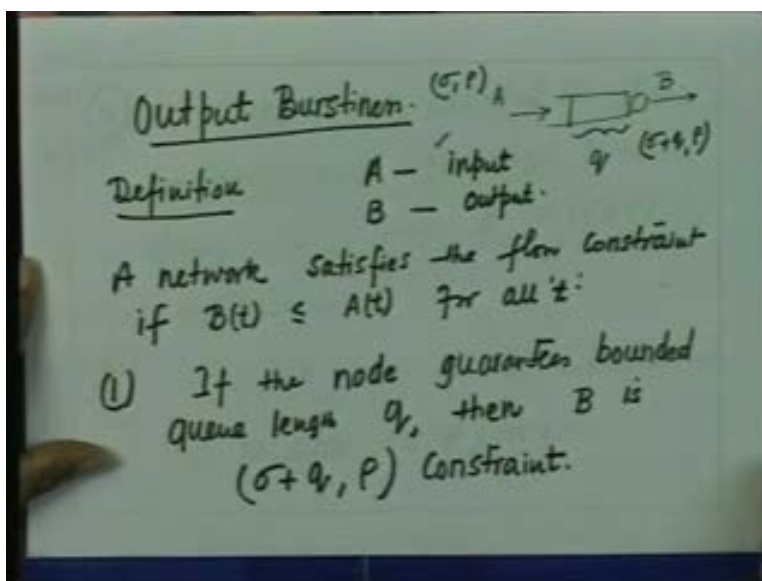 Output Burstiness. (σ,ρ) A B
q (σ+q,ρ)
Definition A - input
B - output.
A network satisfies the flow constraint
if B(t) ≤ A(t) for all 't'
① If the node guarantees bounded
queue length q, then B is
(σ+q, ρ) Constraint.